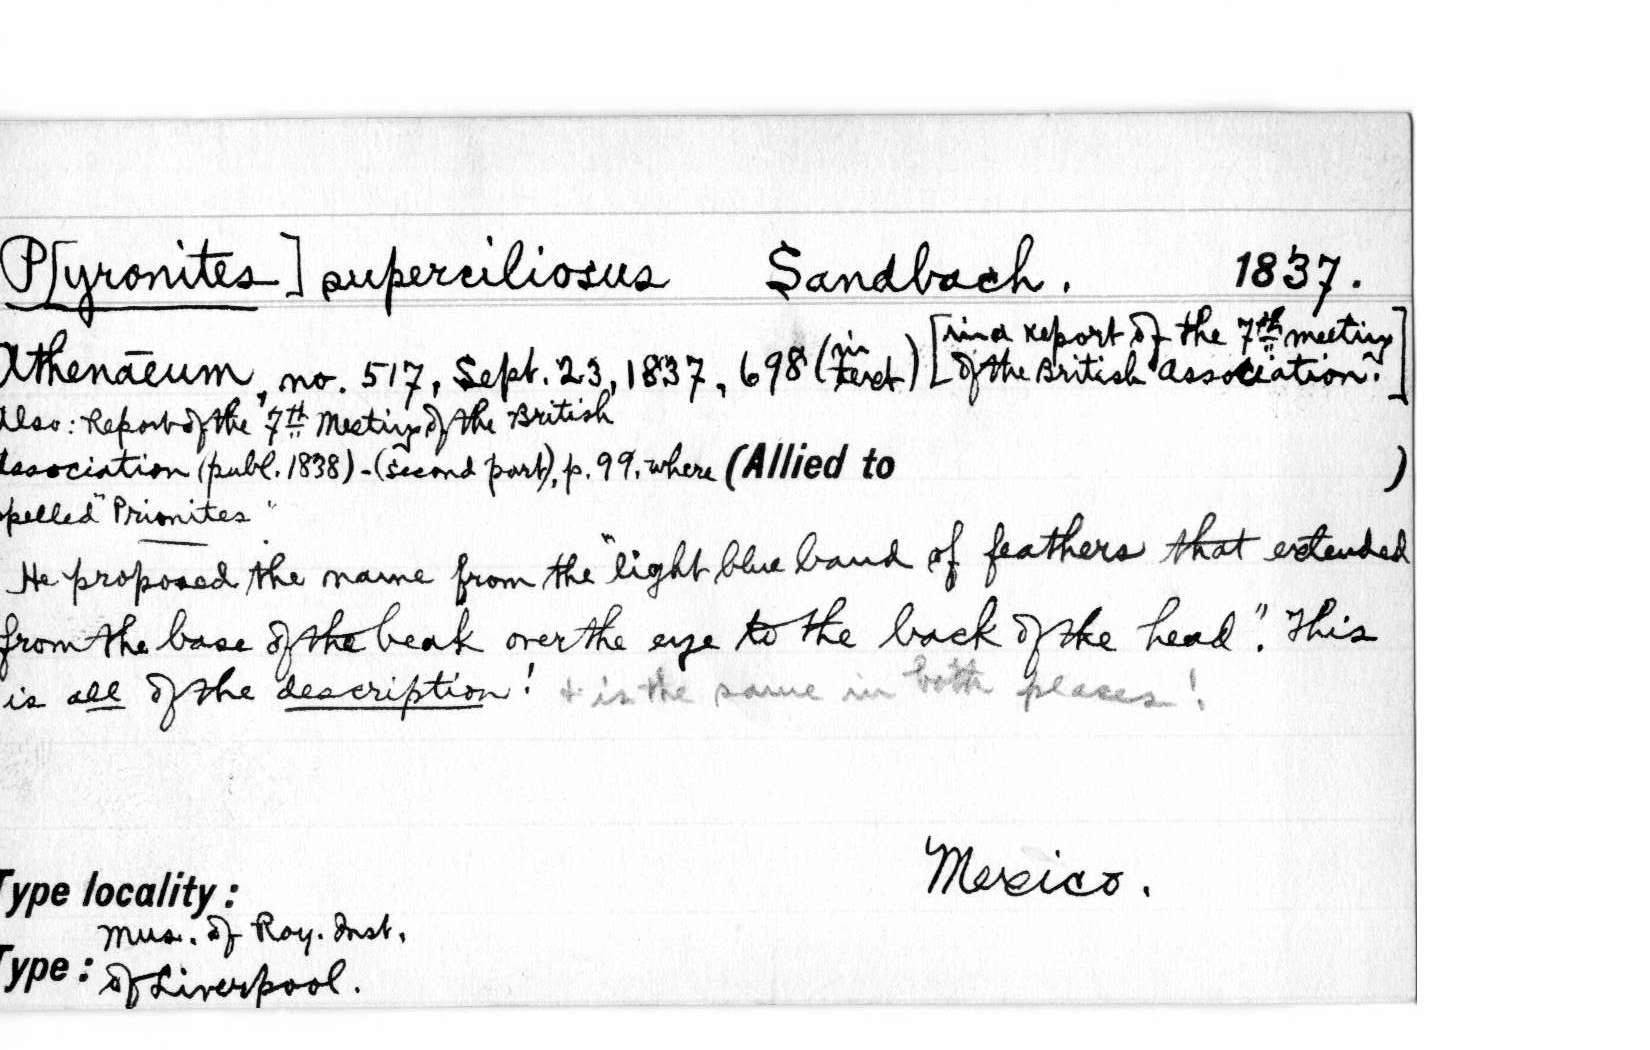 P[yronites] superciliosus Sandbach. 1837.
Athenāeum, no. 517, Sept. 23, 1837, 698 (in text) [in a report of the 7th meeting of the British Association.]
Also: Report of the 7th Meeting of the British
Association (publ. 1838) - (second part), p. 99. where (Allied to )
spelled "Prionites"
He proposed the name from the "light blue band of feathers that extended
from the base of the beak over the eye to the back of the head". This
is all of the description! + is the same in both places!
Mexico.
Type locality:
Mus. of Roy. Inst.
Type: of Liverpool.